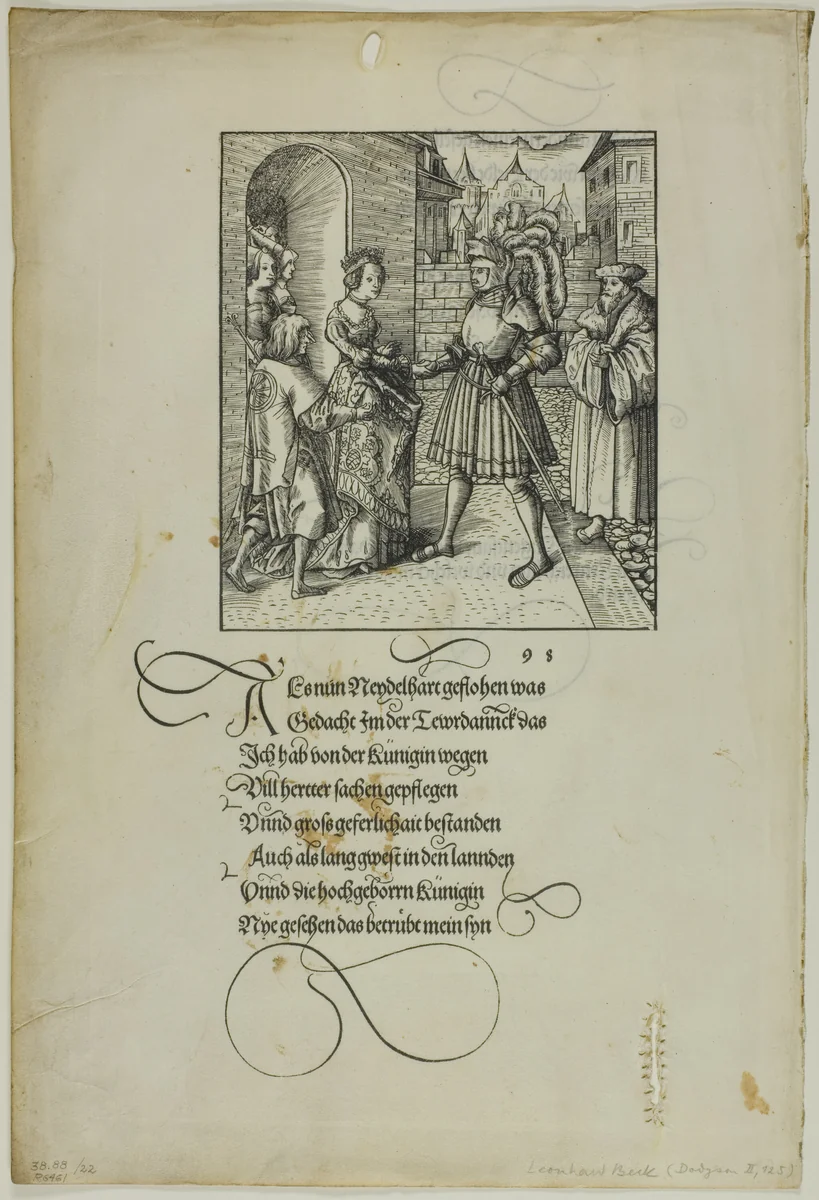 98
ALs nun Neydelhart geflohen was
Gedacht Im der Tewrdannck das
Ich hab von der Künigin wegen
Vill hertter sachen gepflegen
Vnnd gross geferlichait bestanden
Auch als lang gwest in den lannden
Vnnd die hochgeborrn Künigin
Nye gesehen das betrübt mein syn
38.88/22
R6461
Leonhard Beck (Dodgson II, 125)